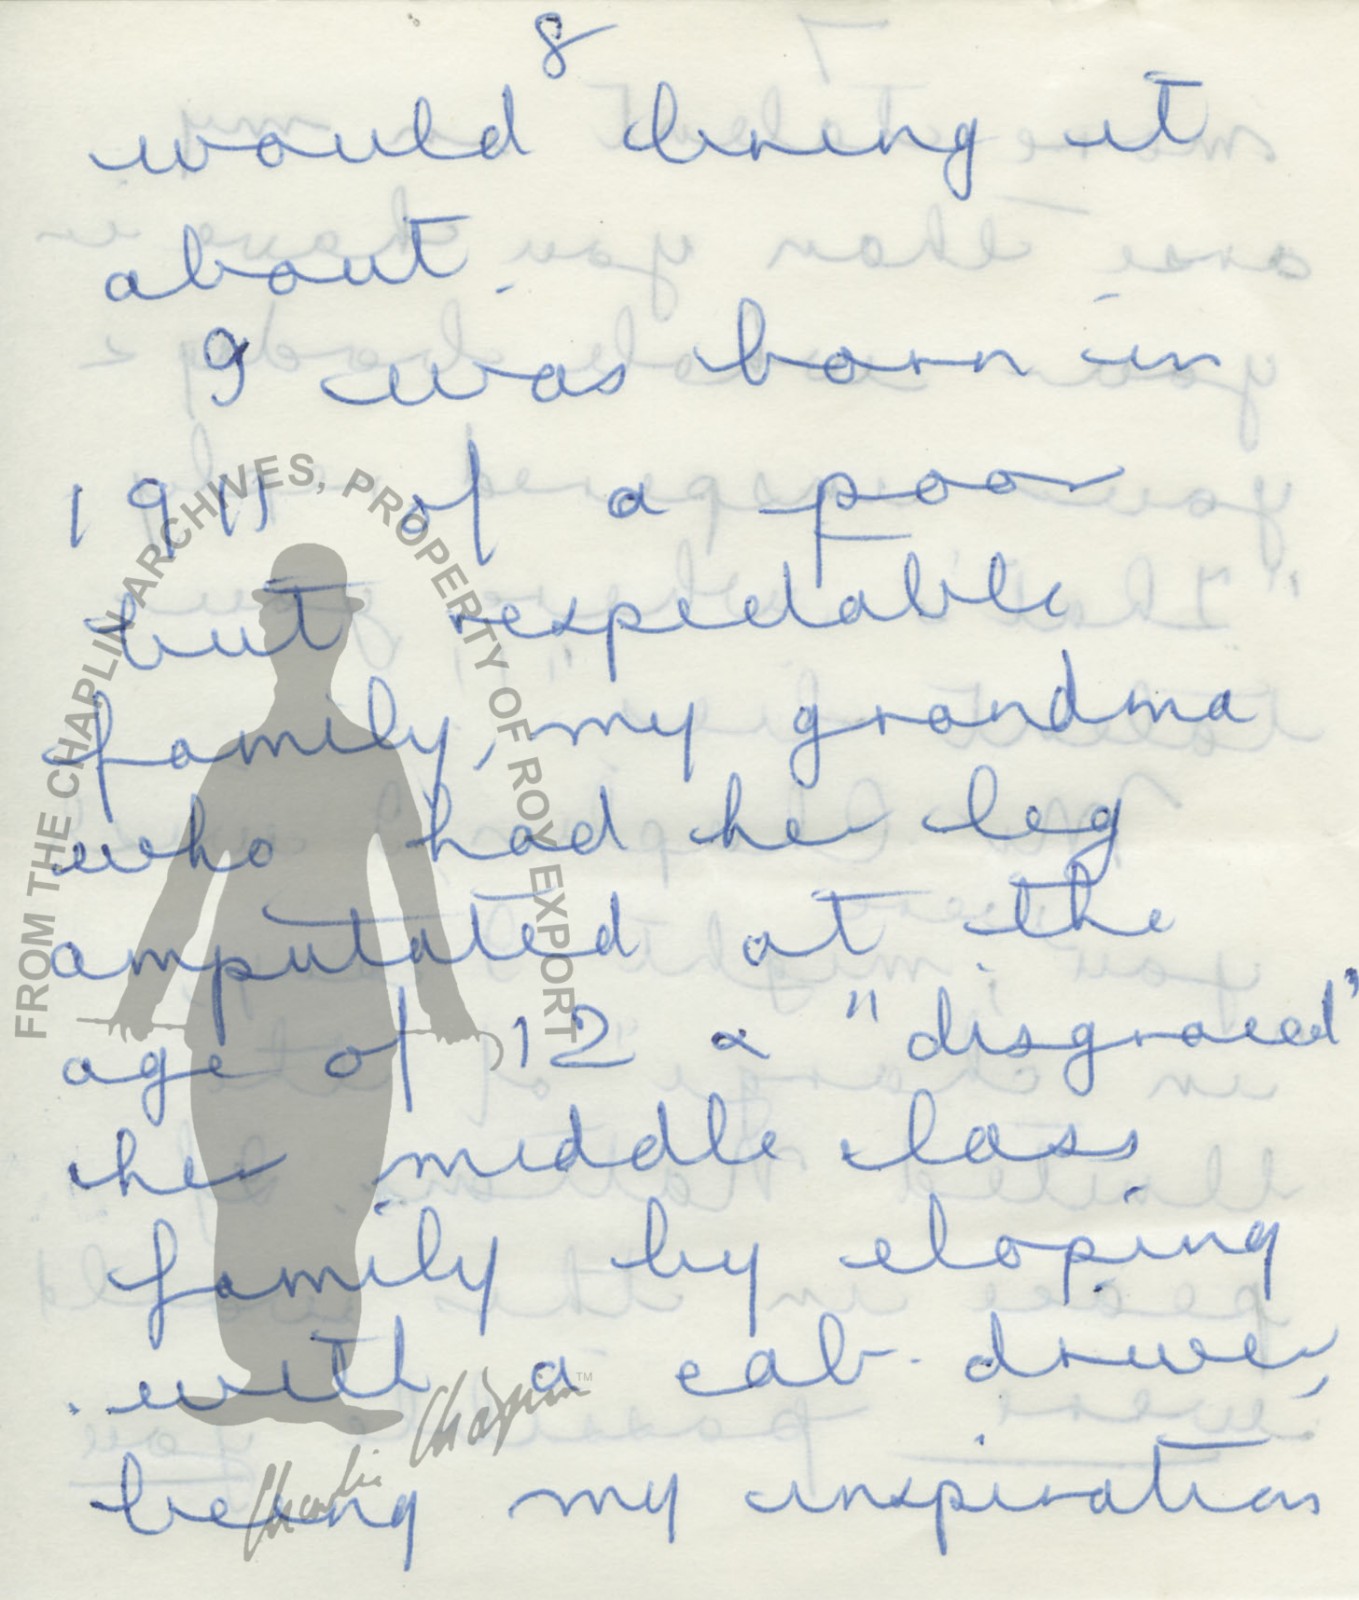 8
would bring it
about.
I was born in
1911 of a poor
but respectable
family, my grandma
who had her leg
amputated at the
age of 12 & "disgraced"
her middle class
family by eloping
with a cab-driver,
being my inspiration
FROM THE CHAPLIN ARCHIVES, PROPERTY OF ROY EXPORT
Charlie Chaplin ™